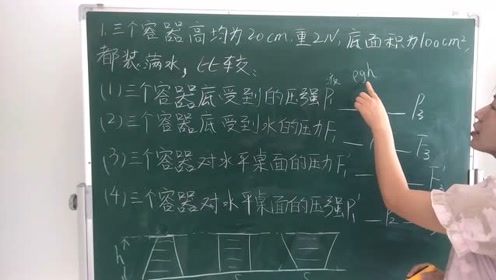 1.三个容器高均为20cm.重2N,底面积为100cm²,
都装满水,比较:
液 ρgh
(1)三个容器底受到的压强P₁ P₃
(2)三个容器底受到水的压力F₁ F₃
(3)三个容器对水平桌面的压力F₁' F₃'
(4)三个容器对水平桌面的压强P₁' P₂
h
S S